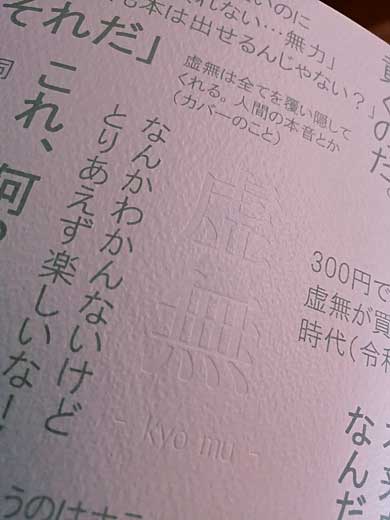 いのに
れない…無力」
も本は出せるんじゃない？」
それだ」
のだ
虚無は全てを覆い隠して
くれる。人間の本音とか
（カバーのこと）
これ、何？
なんかわかんないけど
とりあえず楽しいな！
虚無
- kyo mu -
300円で
虚無が買
時代（令和
なんだ
うのは